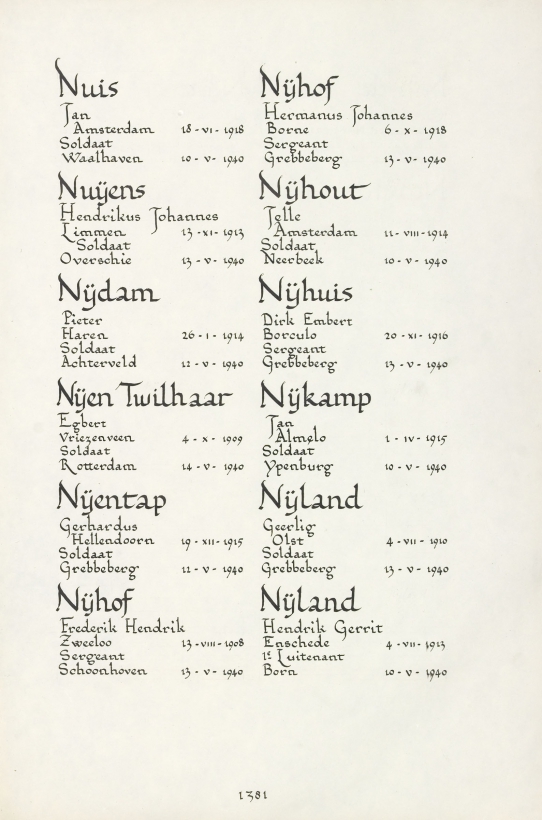 Nuis
Jan
Amsterdam 18 - VI - 1918
Soldaat
Waalhaven 10 - V - 1940
Nuÿens
Hendrikus Johannes
Limmen 13 - XI - 1913
Soldaat
Overschie 13 - V - 1940
Nÿdam
Pieter
Haren 26 - I - 1914
Soldaat
Achterveld 12 - V - 1940
Nÿen Twilhaar
Egbert
Vriezenveen 4 - X - 1909
Soldaat
Rotterdam 14 - V - 1940
Nÿentap
Gerhardus
Hellendoorn 19 - XII - 1915
Soldaat
Grebbeberg 12 - V - 1940
Nÿhof
Frederik Hendrik
Zweeloo 13 - VIII - 1908
Sergeant
Schoonhoven 13 - V - 1940
Nÿhof
Hermanus Johannes
Borne 6 - X - 1918
Sergeant
Grebbeberg 13 - V - 1940
Nÿhout
Jelle
Amsterdam 11 - VIII - 1914
Soldaat
Neerbeek 10 - V - 1940
Nÿhuis
Dirk Embert
Borculo 20 - XI - 1916
Sergeant
Grebbeberg 13 - V - 1940
Nÿkamp
Jan
Almelo 1 - IV - 1915
Soldaat
Ypenburg 10 - V - 1940
Nÿland
Geerlig
Olst 4 - VII - 1910
Soldaat
Grebbeberg 13 - V - 1940
Nÿland
Hendrik Gerrit
Enschede 4 - VII - 1913
1e Luitenant
Born 10 - V - 1940
1381